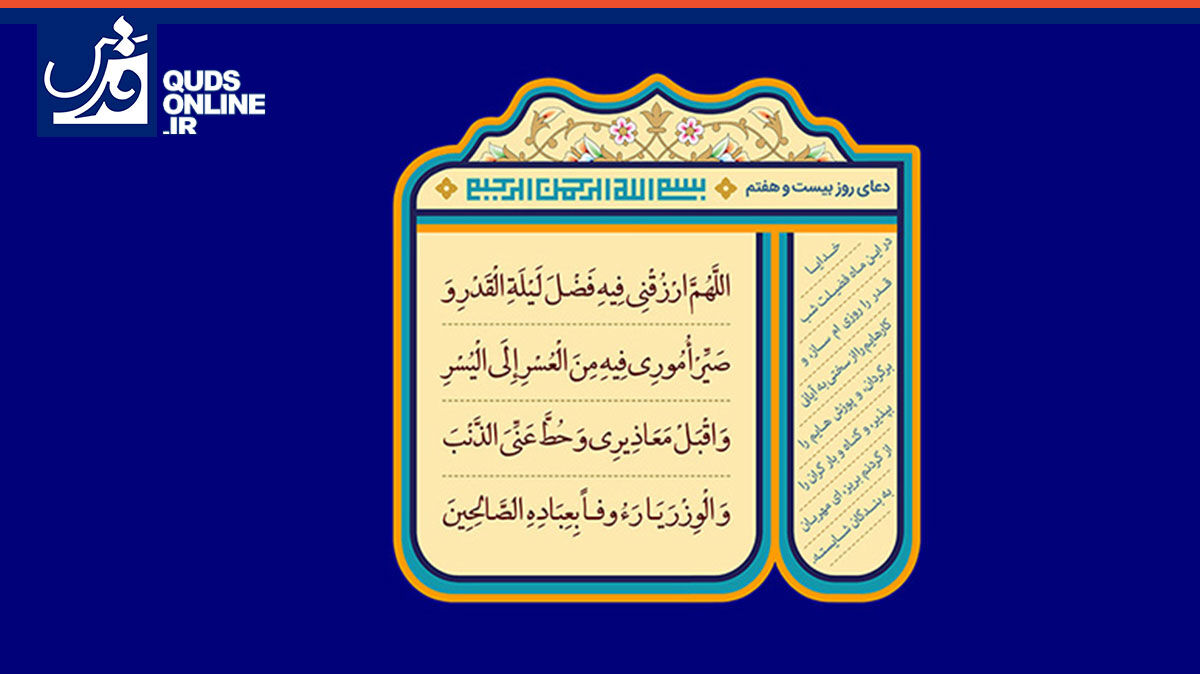 قدس
QUDS
ONLINE
.IR
دعای روز بیست و هفتم
بسم الله الرحمن الرحیم
اللَّهُمَّ ارْزُقْنِی فِیهِ فَضْلَ لَیْلَةِ الْقَدْرِ وَ
صَیِّرْ أُمُورِی فِیهِ مِنَ الْعُسْرِ إِلَی الْیُسْرِ
وَ اقْبَلْ مَعَاذِیرِی وَ حُطَّ عَنِّیَ الذَّنْبَ
وَ الْوِزْرَ یَا رَءُوفاً بِعِبَادِهِ الصَّالِحِینَ
خدایا
در این ماه فضیلت شب
قدر را روزی ام ساز، و
کارهایم را از سختی به آسانی
برگردان، و پوزش هایم را
بپذیر، و گناه و بار گران را
از گردنم بریز، ای مهربان
به بندگان شایسته.